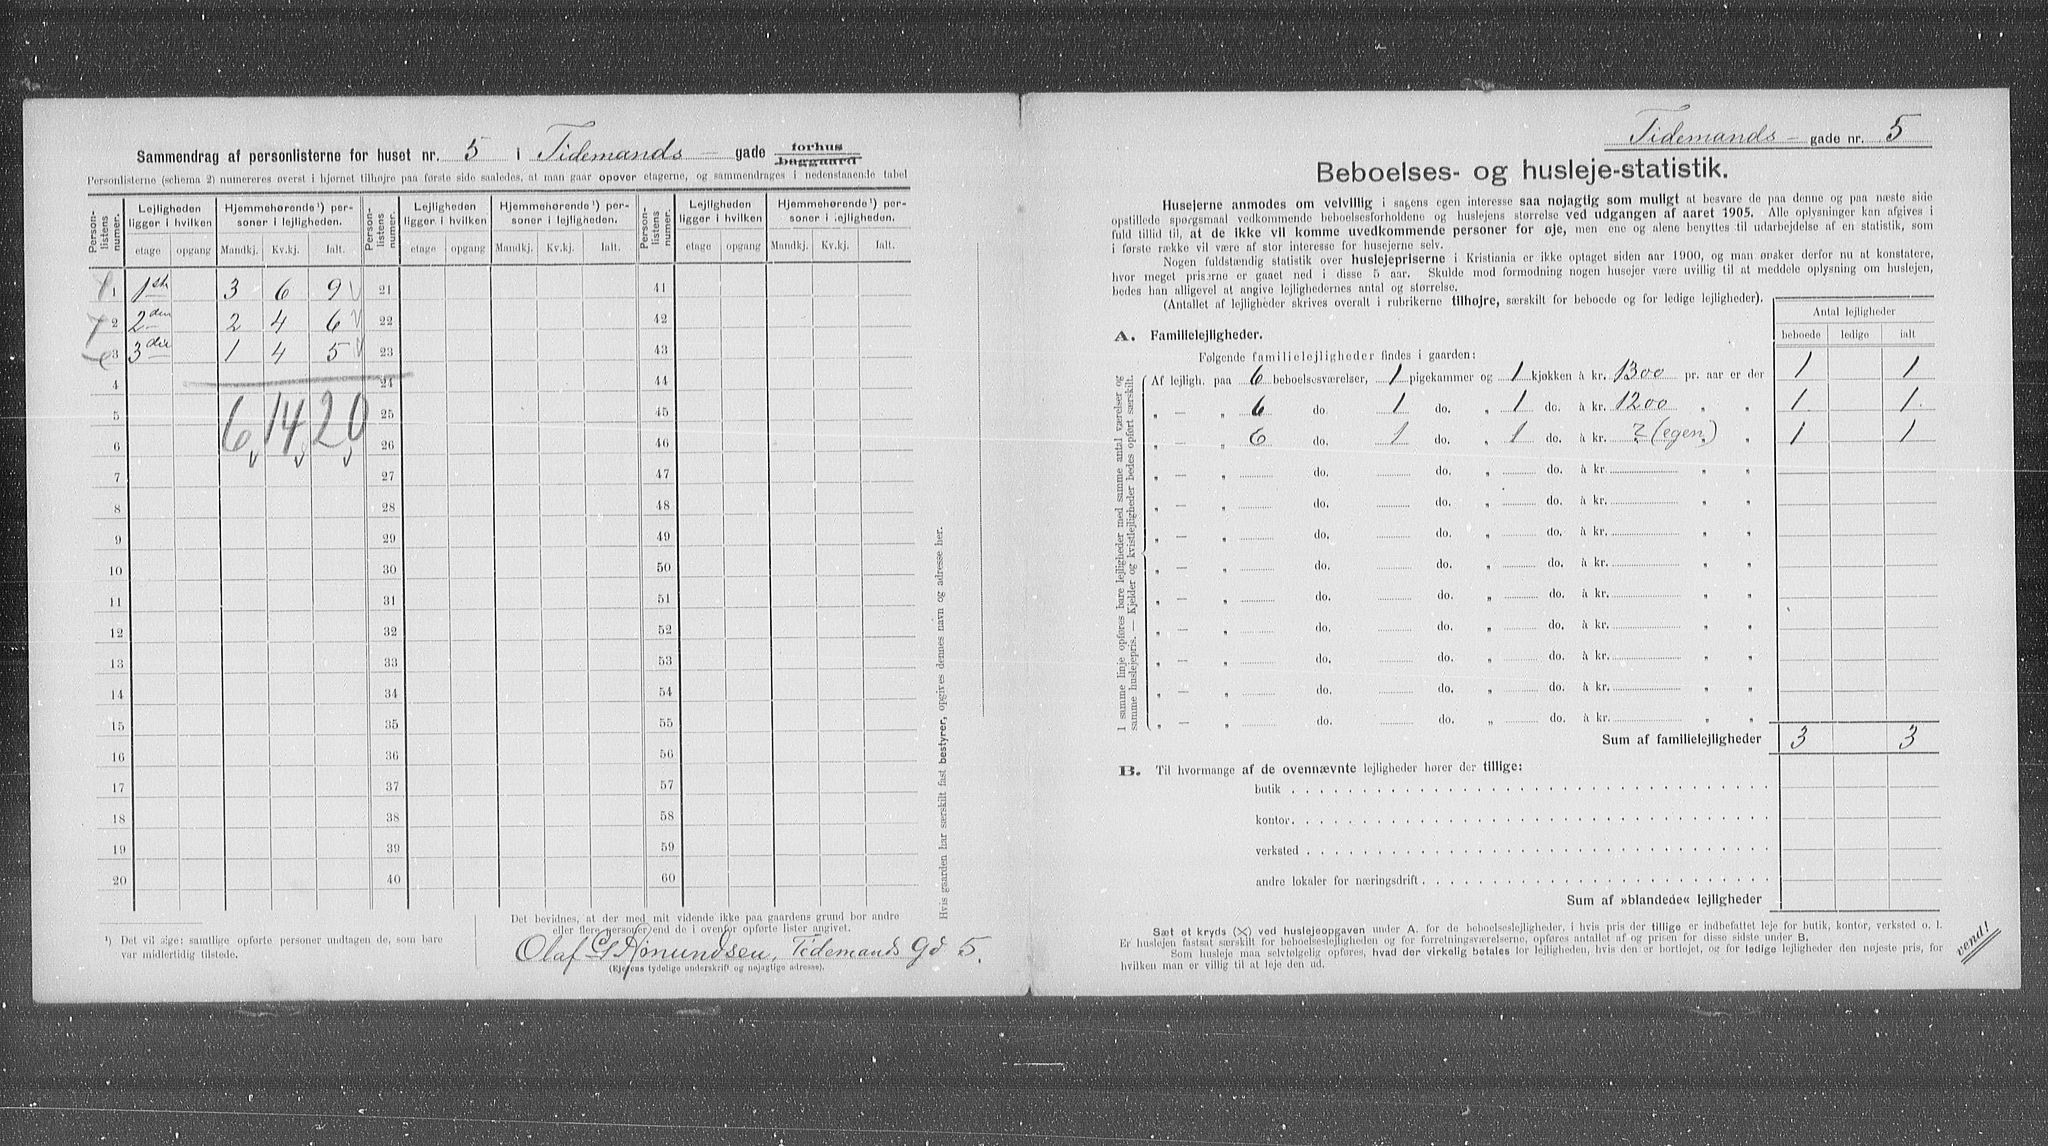 Sammendrag af personlisterne for huset nr. 5 i Tidemands- gade forhus baggaard
Personlisterne (schema 2) numereres øverst i hjørnet tilhøjre paa første side saaledes, at man gaar opover etagerne, og sammendrages i nedenstaaende tabel
Personlistens numer. Lejligheden ligger i hvilken Hjemmehørende¹) personer i lejligheden. Personlistens numer. Lejligheden ligger i hvilken Hjemmehørende¹) personer i lejligheden. Personlistens numer. Lejligheden ligger i hvilken Hjemmehørende¹) personer i lejligheden.
etage opgang Mandkj. Kv.kj. Ialt. etage opgang Mandkj. Kv.kj. Ialt. etage opgang Mandkj. Kv.kj. Ialt.
1 1ste 3 6 9 21 41
2 2den 2 4 6 22 42
3 3die 1 4 5 23 43
4 24 44
5 6 14 20 25 45
6 26 46
7 27 47
8 28 48
9 29 49
10 30 50
11 31 51
12 32 52
13 33 53
14 34 54
15 35 55
16 36 56
17 37 57
18 38 58
19 39 59
20 40 60
¹) Det vil sige: samtlige opførte personer undtagen de, som bare
var midlertidig tilstede.
Det bevidnes, at der med mit vidende ikke paa gaardens grund bor andre
eller flere personer end de i ovenfor opførte lister angivet.
Tidemands Gd 5.
(Ejerens tydelige underskrift og nøjagtige adresse).
Hvis gaarden har særskilt fast bestyrer, opgives dennes navn og adresse her.
Tidemands- gade nr. 5
Beboelses- og husleje-statistik.
Husejerne anmodes om velvillig i sagens egen interesse saa nøjagtig som muligt at besvare de paa denne og paa næste side
opstillede spørgsmaal vedkommende beboelsesforholdene og huslejens størrelse ved udgangen af aaret 1905. Alle oplysninger kan afgives i
fuld tillid til, at de ikke vil komme uvedkommende personer for øje, men ene og alene benyttes til udarbejdelse af en statistik, som
i første række vil være af stor interesse for husejerne selv.
Nogen fuldstændig statistik over huslejepriserne i Kristiania er ikke optaget siden aar 1900, og man ønsker derfor nu at konstatere,
hvor meget priserne er gaaet ned i disse 5 aar. Skulde mod formodning nogen husejer være uvillig til at meddele oplysning om huslejen,
bedes han alligevel at angive lejlighedernes antal og størrelse.
(Antallet af lejligheder skrives overalt i rubrikerne tilhøjre, særskilt for beboede og for ledige lejligheder).
Antal lejligheder
beboede ledige ialt
A. Familielejligheder.
Følgende familielejligheder findes i gaarden:
I samme linje opføres bare lejligheder med samme antal værelser og
samme huslejepris. — Kjelder og kvistlejligheder bedes opført særskilt.
Af lejligh. paa 6 beboelsesværelser, 1 pigekammer og 1 kjøkken à kr. 1300 pr. aar er der 1 1
„ — „ 6 do. 1 do. „ 1 do. à kr. 1200 „ „ 1 1
„ — „ 6 do. 1 do. „ 1 do. à kr. ? (egen) „ „ 1 1
„ — „ do. do. „ do. à kr. „ „
„ — „ do. do. „ do. à kr. „ „
„ — „ do. do. „ do. à kr. „ „
„ — „ do. do. „ do. à kr. „ „
„ — „ do. do. „ do. à kr. „ „
„ — „ do. do. „ do. à kr. „ „
„ — „ do. do. „ do. à kr. „ „
„ — „ do. do. „ do. à kr. „ „
„ — „ do. do. „ do. à kr. „ „
Sum af familielejligheder 3 3
B. Til hvormange af de ovennævnte lejligheder hører der tillige:
butik
kontor
verksted
andre lokaler for næringsdrift
Sum af »blandede« lejligheder
Sæt et kryds (×) ved huslejeopgaven under A. for de beboelseslejligheder, i hvis pris der tillige er indbefattet leje for butik, kontor, verksted o. l.
Er huslejen fastsat særskilt for beboelseslejligheden og for forretningsværelserne, opføres antallet af og prisen for disse sidste under B.
Som husleje maa selvfølgelig opføres, hvad der virkelig betales for lejligheden, hvis den er bortlejet, og for ledige lejligheder den nøjeste pris, for
hvilken man er villig til at leje den ud.
vend!